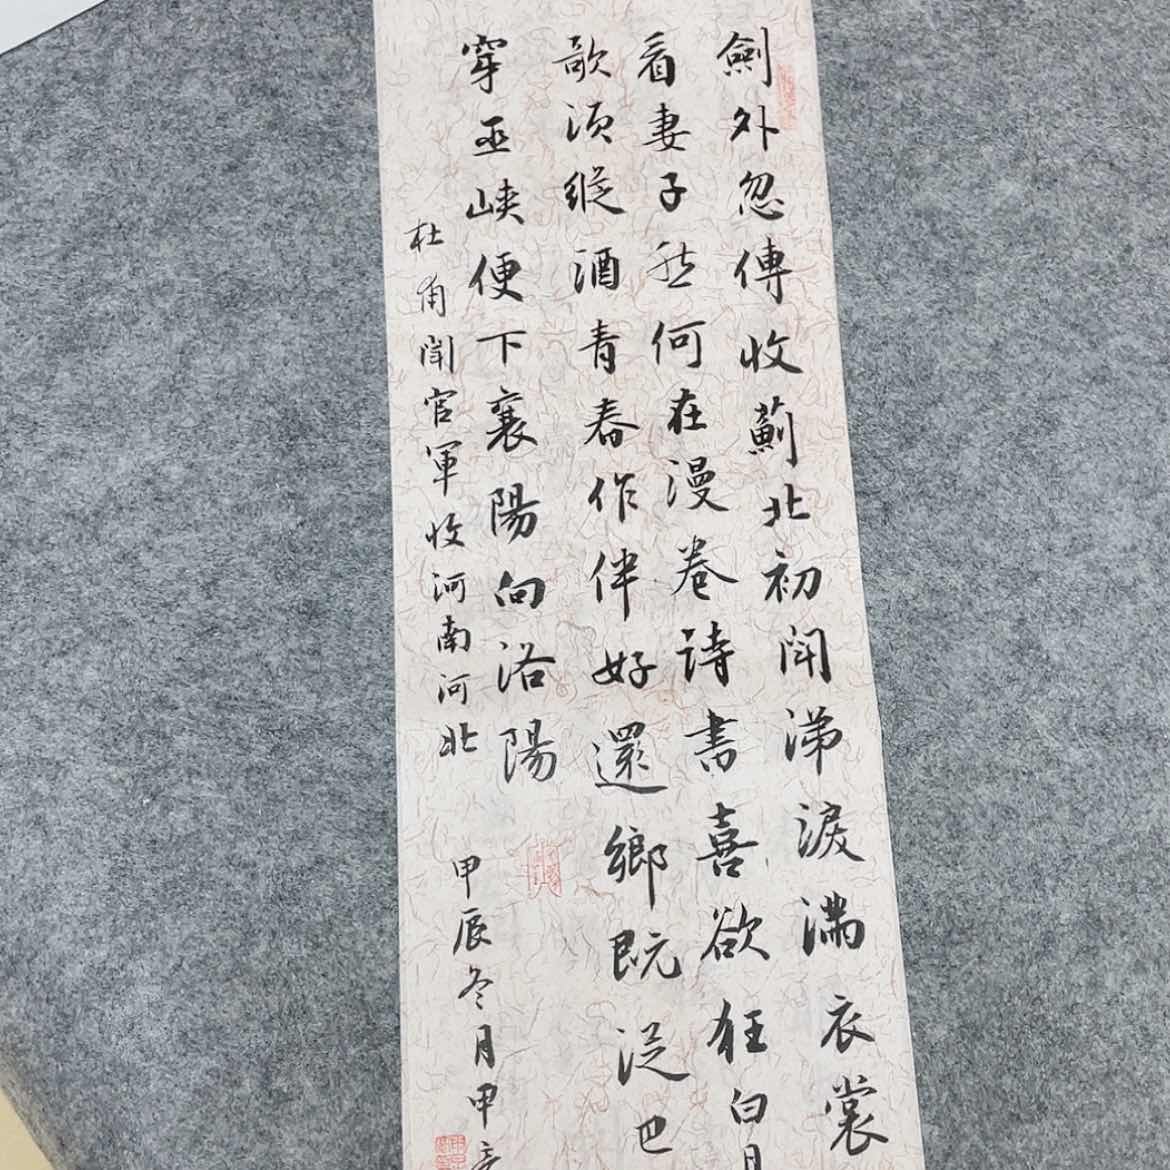 劍外忽傳收薊北初聞涕淚滿衣裳
看妻子愁何在漫卷詩書喜欲狂白日
歌須縱酒青春作伴好還鄉既從巴
穿巫峽便下襄陽向洛陽
杜甫聞官軍收河南河北 甲辰冬月甲